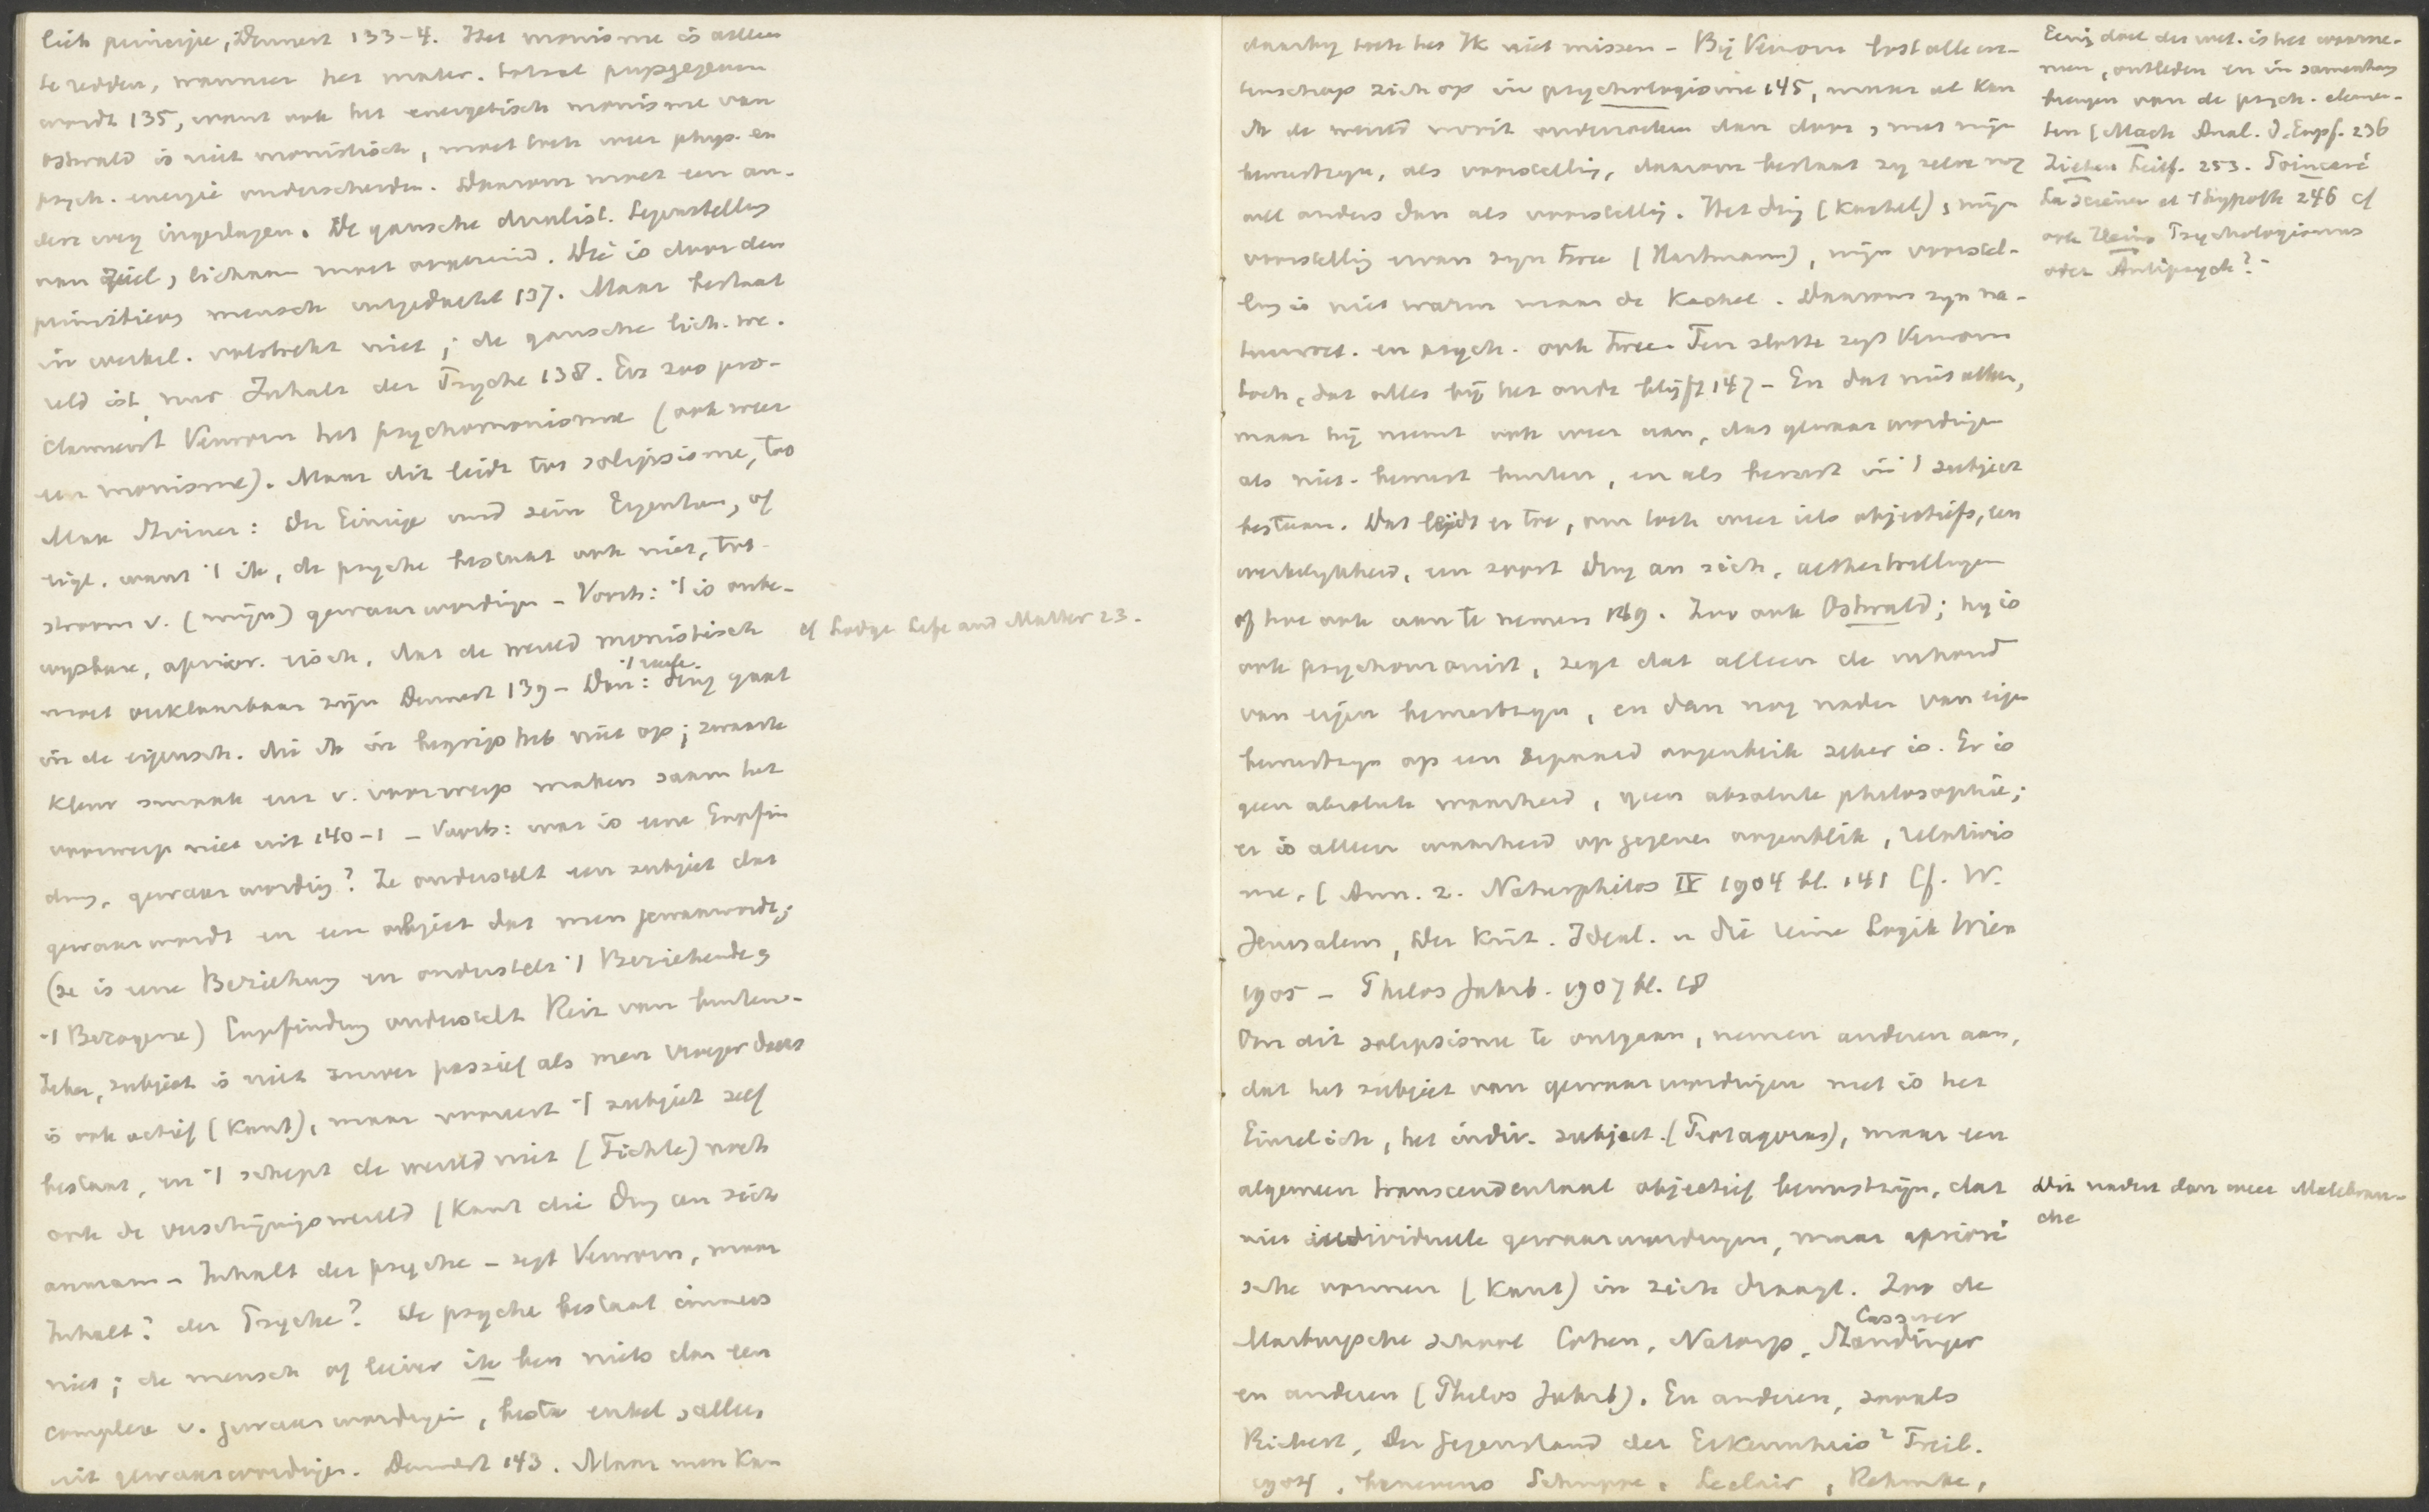 lich principe, Dennert 133-4. Het monisme is alleen
te redden, wanneer het mater. totaal prijsgegeven
wordt 135, want ook het energetisch monisme van
Ostwald is niet monistisch, moet toch weer phys. en
psych. energie onderscheiden. Daarom moet een an-
dere weg ingeslagen. De gansche dualist. tegenstelling
van ziel, lichaam moet overwind. Die is door den
primitieven mensch uitgedacht 137. Maar bestaat
in werkel. volstrekt niet; de gansche lich. we-
reld ist nur Inhalt der Psyche 138. En zoo pro-
clameert Verworn het psychomonisme (ook weer
een monisme). Maar dit leidt tot solipsisme, tot
Max Stirner: Der Einige und sein Eigentum, of
eigl. want 't ik, de psyche bestaat ook niet, tot
stroom v. (mijn) gewaarwordingen - Vorts: 't is onbe-
wijsbare, aprior. eisch, dat de wereld monistisch
cf Lodge Life and Matter 23.
moet verklaarbaar zijn Dennert 139 - Dan: 't reëele ding gaat
in de eigensch. die ik in begrip heb niet op; zwaarte
kleur smaak enz v. voorwerp maken saam het
voorwerp niet uit 140-1 - Voorts: wat is eene Empfin
dung, gewaarwording? Ze onderstelt een subject dat
gewaarwordt en een object dat men gewaarwordt;
(ze is eene Beziehung en onderstelt 't Beziehende,
't Bezogene) Empfindung onderstelt Reiz van buiten-
Zeker, subject is niet zuiver passief als men vroeger dacht
is ook actief (Kant), maar vooreerst 't subject zelf
bestaat, en 't schept de wereld niet (Fichte) noch
ook de verschijningswereld (Kant die Ding an sich
aannam - Inhalt der psyche - zegt Verworn, maar
Inhalt? der Psyche? De psyche bestaat immers
niet; de mensch of liever ik ben niets dan een
complex v. gewaarwordingen, besta enkel, alleen
uit gewaarwordingen. Dennert 143. Maar men kan
daarbij toch het Ik niet missen - Bij Verworn lost alle we-
tenschap zich op in psychologisme 145, maar al kan
ik de wereld nooit onderzoeken dan door, met mijn
bewustzijn, als voorstelling, daarom bestaat zij zelve nog
wel anders dan als voorstelling. Het ding (Kachel), mijn
voorstelling ervan zijn twee (Hartmann), mijn voorstel-
ling is niet warm maar de Kachel. Daarom zijn na-
tuurwet. en psych. ook twee. Ten slotte zegt Verworn
toch, dat alles bij het oude blijft 147 - En dat niet alleen,
maar hij neemt ook weer aan, dat gewaarwordingen
als niet-bewust buiten, en als bewust in 't subject
bestaan. Dat leidt er toe, om toch weer iets objectiefs, een
werkelijkheid, een soort Ding an sich, aethertrillingen
of hoe ook aan te nemen 149. Zoo ook Ostwald; hij is
ook psychomonist, zegt dat alleen de inhoud
van eigen bewustzijn, en dan nog nader van eigen
bewustzijn op een bepaald oogenblik zeker is. Er is
geen absolute waarheid, geen absolute philosophie;
er is alleen waarheid op gegeven oogenblik, relativis
me. (Ann. z. Naturphilos IV 1904 bl. 141 Cf. W.
Jerusalem, Der Krit. Ideal. u die reine Logik Wien
1905 - Philos Jahrb. 1907 bl. 18
Om dit solipsisme te ontgaan, nemen anderen aan,
dat het subject van gewaarwordingen niet is het
Einzelich, het indiv. subject (Protagoras), maar een
algemeen transcendentaal objectief bewustzijn, dat
niet individueele gewaarwordingen, maar apriori
sche vormen (Kant) in zich draagt. Zoo de
Marburgsche school Cohen, Natorp, Cassirer Staudinger
en anderen (Philos Jahrb). En anderen, zooals
Rickert, Der Gegenstand der Erkenntnis² Freib.
1904, benevens Schuppe, Leclair, Rehmke,
Eenig doel der wet. is het waarne-
men, ontleden en in samenhang
brengen van de psych. elemen-
ten (Mach Anal. d. Empf. 236
Ziehen Leitf. 253. Poincaré
La Science et l'hypoth 246 cf
ook Heim Psychologismus
oder Antipsych? -
Dit nadert dan weer Malebran-
che